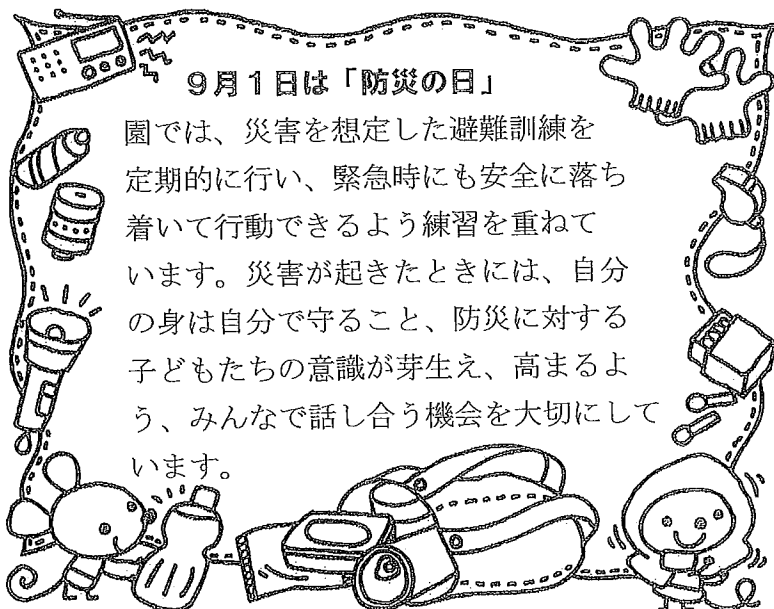 ９月１日は「防災の日」
園では、災害を想定した避難訓練を
定期的に行い、緊急時にも安全に落ち
着いて行動できるよう練習を重ねて
います。災害が起きたときには、自分
の身は自分で守ること、防災に対する
子どもたちの意識が芽生え、高まるよ
う、みんなで話し合う機会を大切にして
います。